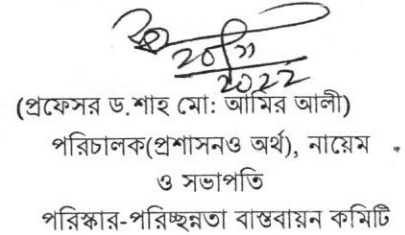 2022
(প্রফেসর ড.শাহ মো: আমির আলী)
পরিচালক(প্রশাসনও অর্থ), নায়েম
ও সভাপতি
পরিস্কার-পরিচ্ছন্নতা বাস্তবায়ন কমিটি